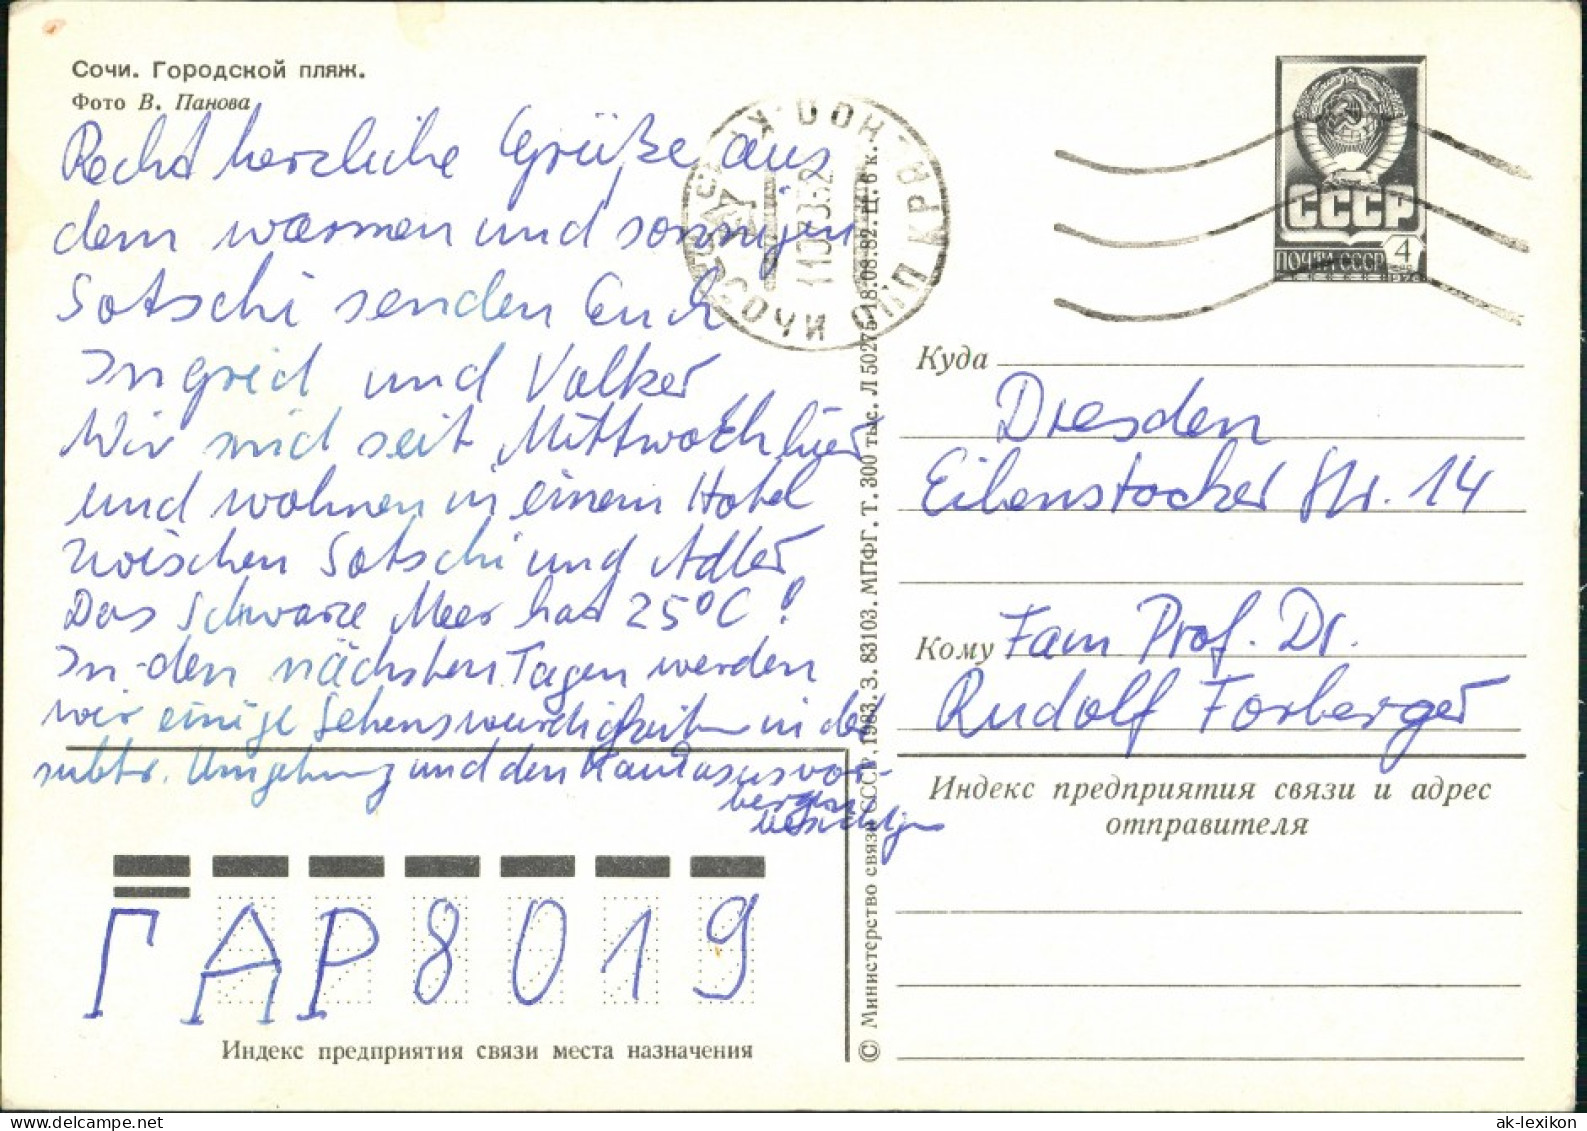 Сочи. Городской пляж.
Фото В. Панова
Recht herzliche Grüße aus
dem warmen und sonnigen
Sotschi senden Euch
Ingrid und Volker
Wir sind seit Mittwoch hier
und wohnen in einem Hotel
zwischen Sotschi und Adler
Das Schwarze Meer hat 25°C!
In den nächsten Tagen werden
wir einige Sehenswürdigkeiten in der
subtr. Umgebung und den Kaukasusvor-
bergen besichtigen
ГДР 8019
Индекс предприятия связи места назначения
© Министерство связи СССР, 1983. З. 83103. МПФГ. Т. 300 тыс. Л 50275 18.08.82. Ц. 6 к.
СОЧИ
СССР
4
ПОЧТА СССР
Куда
Dresden
Eibenstocker Str. 14
Кому Fam Prof. Dr.
Rudolf Forberger
Индекс предприятия связи и адрес
отправителя
ak-lexikon